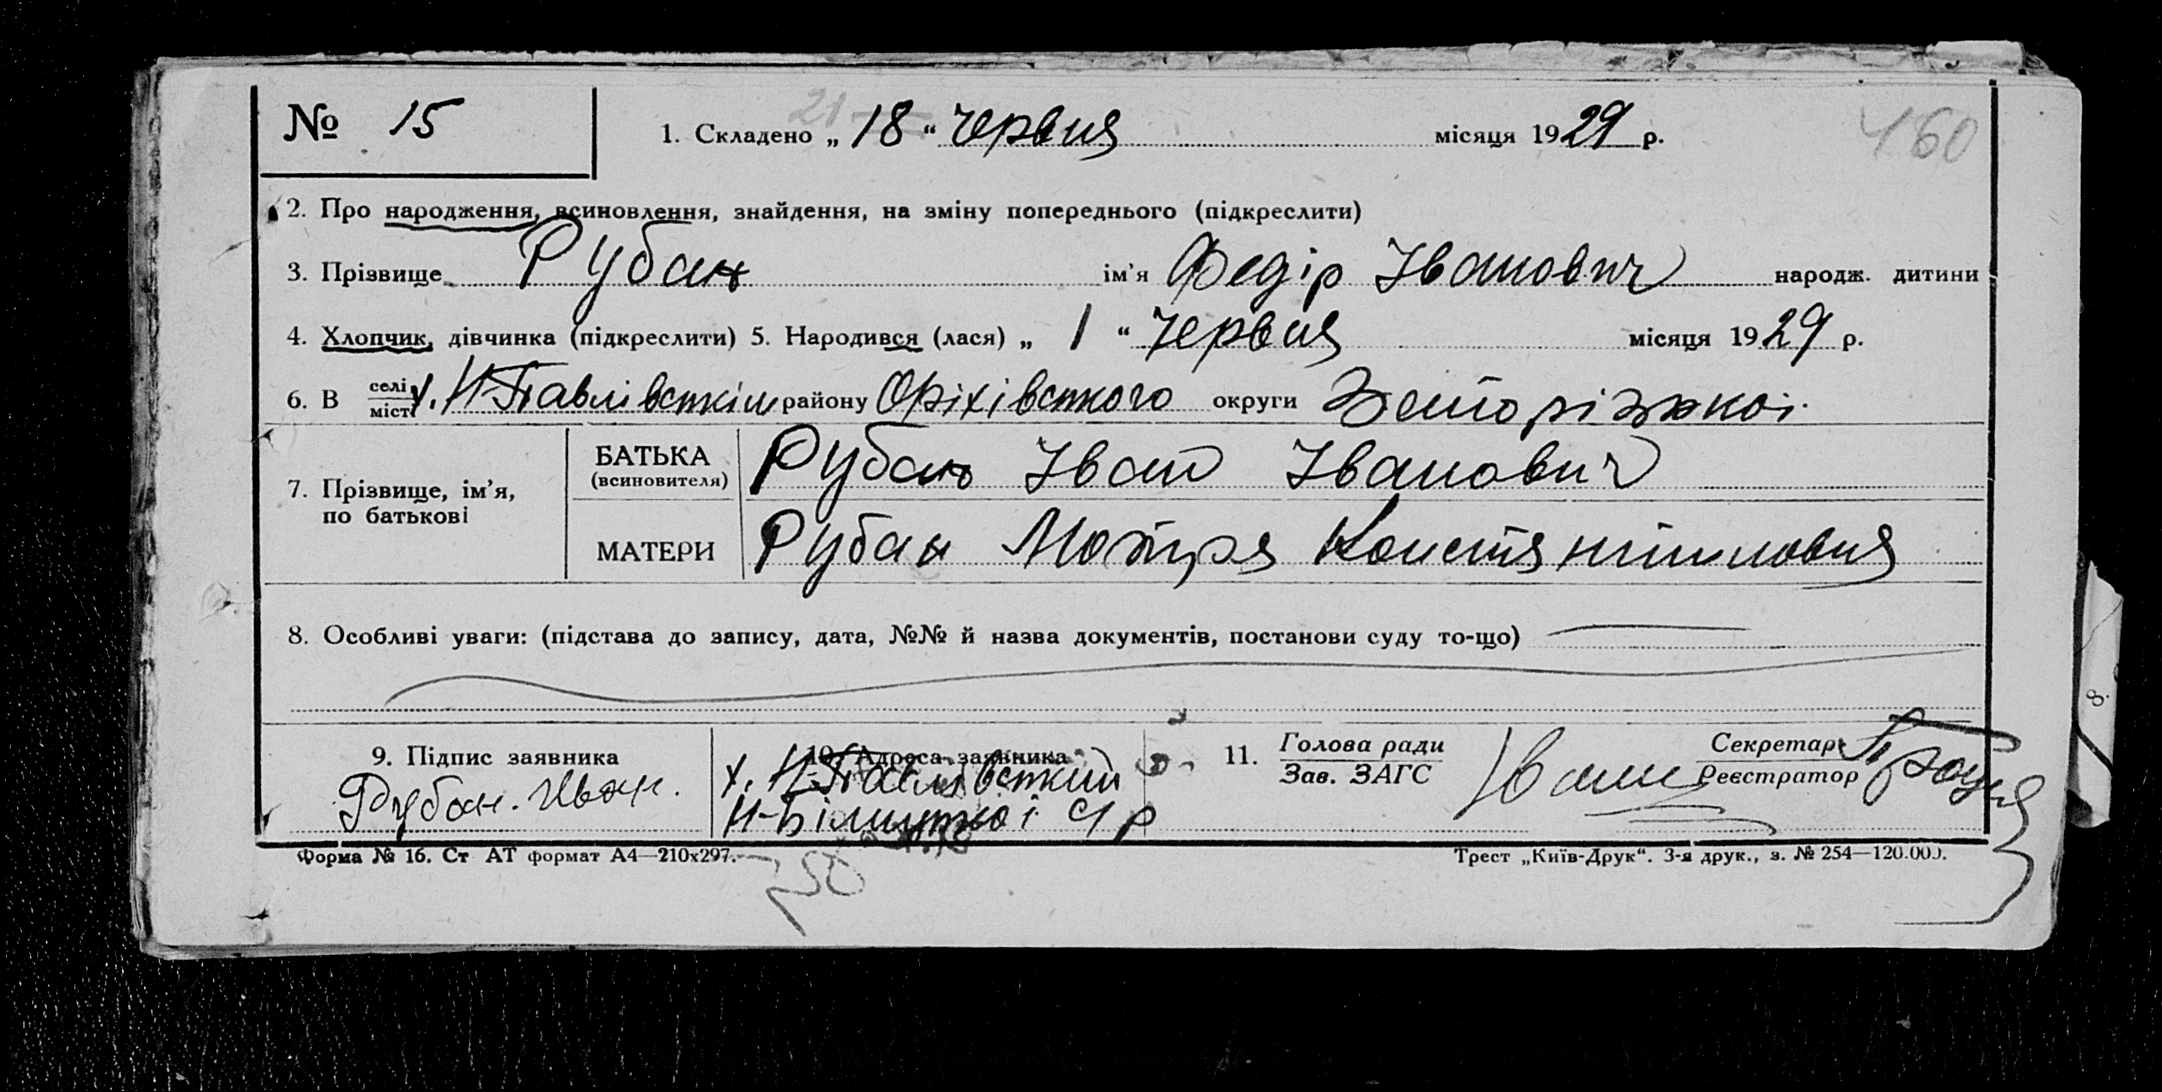 № 15
1. Складено „ 18 “ червня місяця 1929 р.
160
2. Про народження, всиновлення, знайдення, на зміну попереднього (підкреслити)
3. Прізвище Рубан ім’я Федір Іванович народж. дитини
4. Хлопчик, дівчинка (підкреслити) 5. Народився (лася) „ 1 “ червня місяця 1929 р.
6. В селі місті х. Н-Павлівськім району Оріхівського округи Запорізької
7. Прізвище, ім’я, по батькові
БАТЬКА (всиновителя) Рубан Іван Іванович
МАТЕРИ Рубан Мотря Констянтиновня
8. Особливі уваги: (підстава до запису, дата, №№ й назва документів, постанови суду то-що)
9. Підпис заявника
Рубан. Иван.
10. Адреса заявника
х. Н-Павлівський
11. Голова ради
Зав. ЗАГС
Секретар
Реєстратор
Форма № 16. Ст АТ формат А4—210х297.
Трест „Київ-Друк“. 3-я друк., з. № 254—120.000.